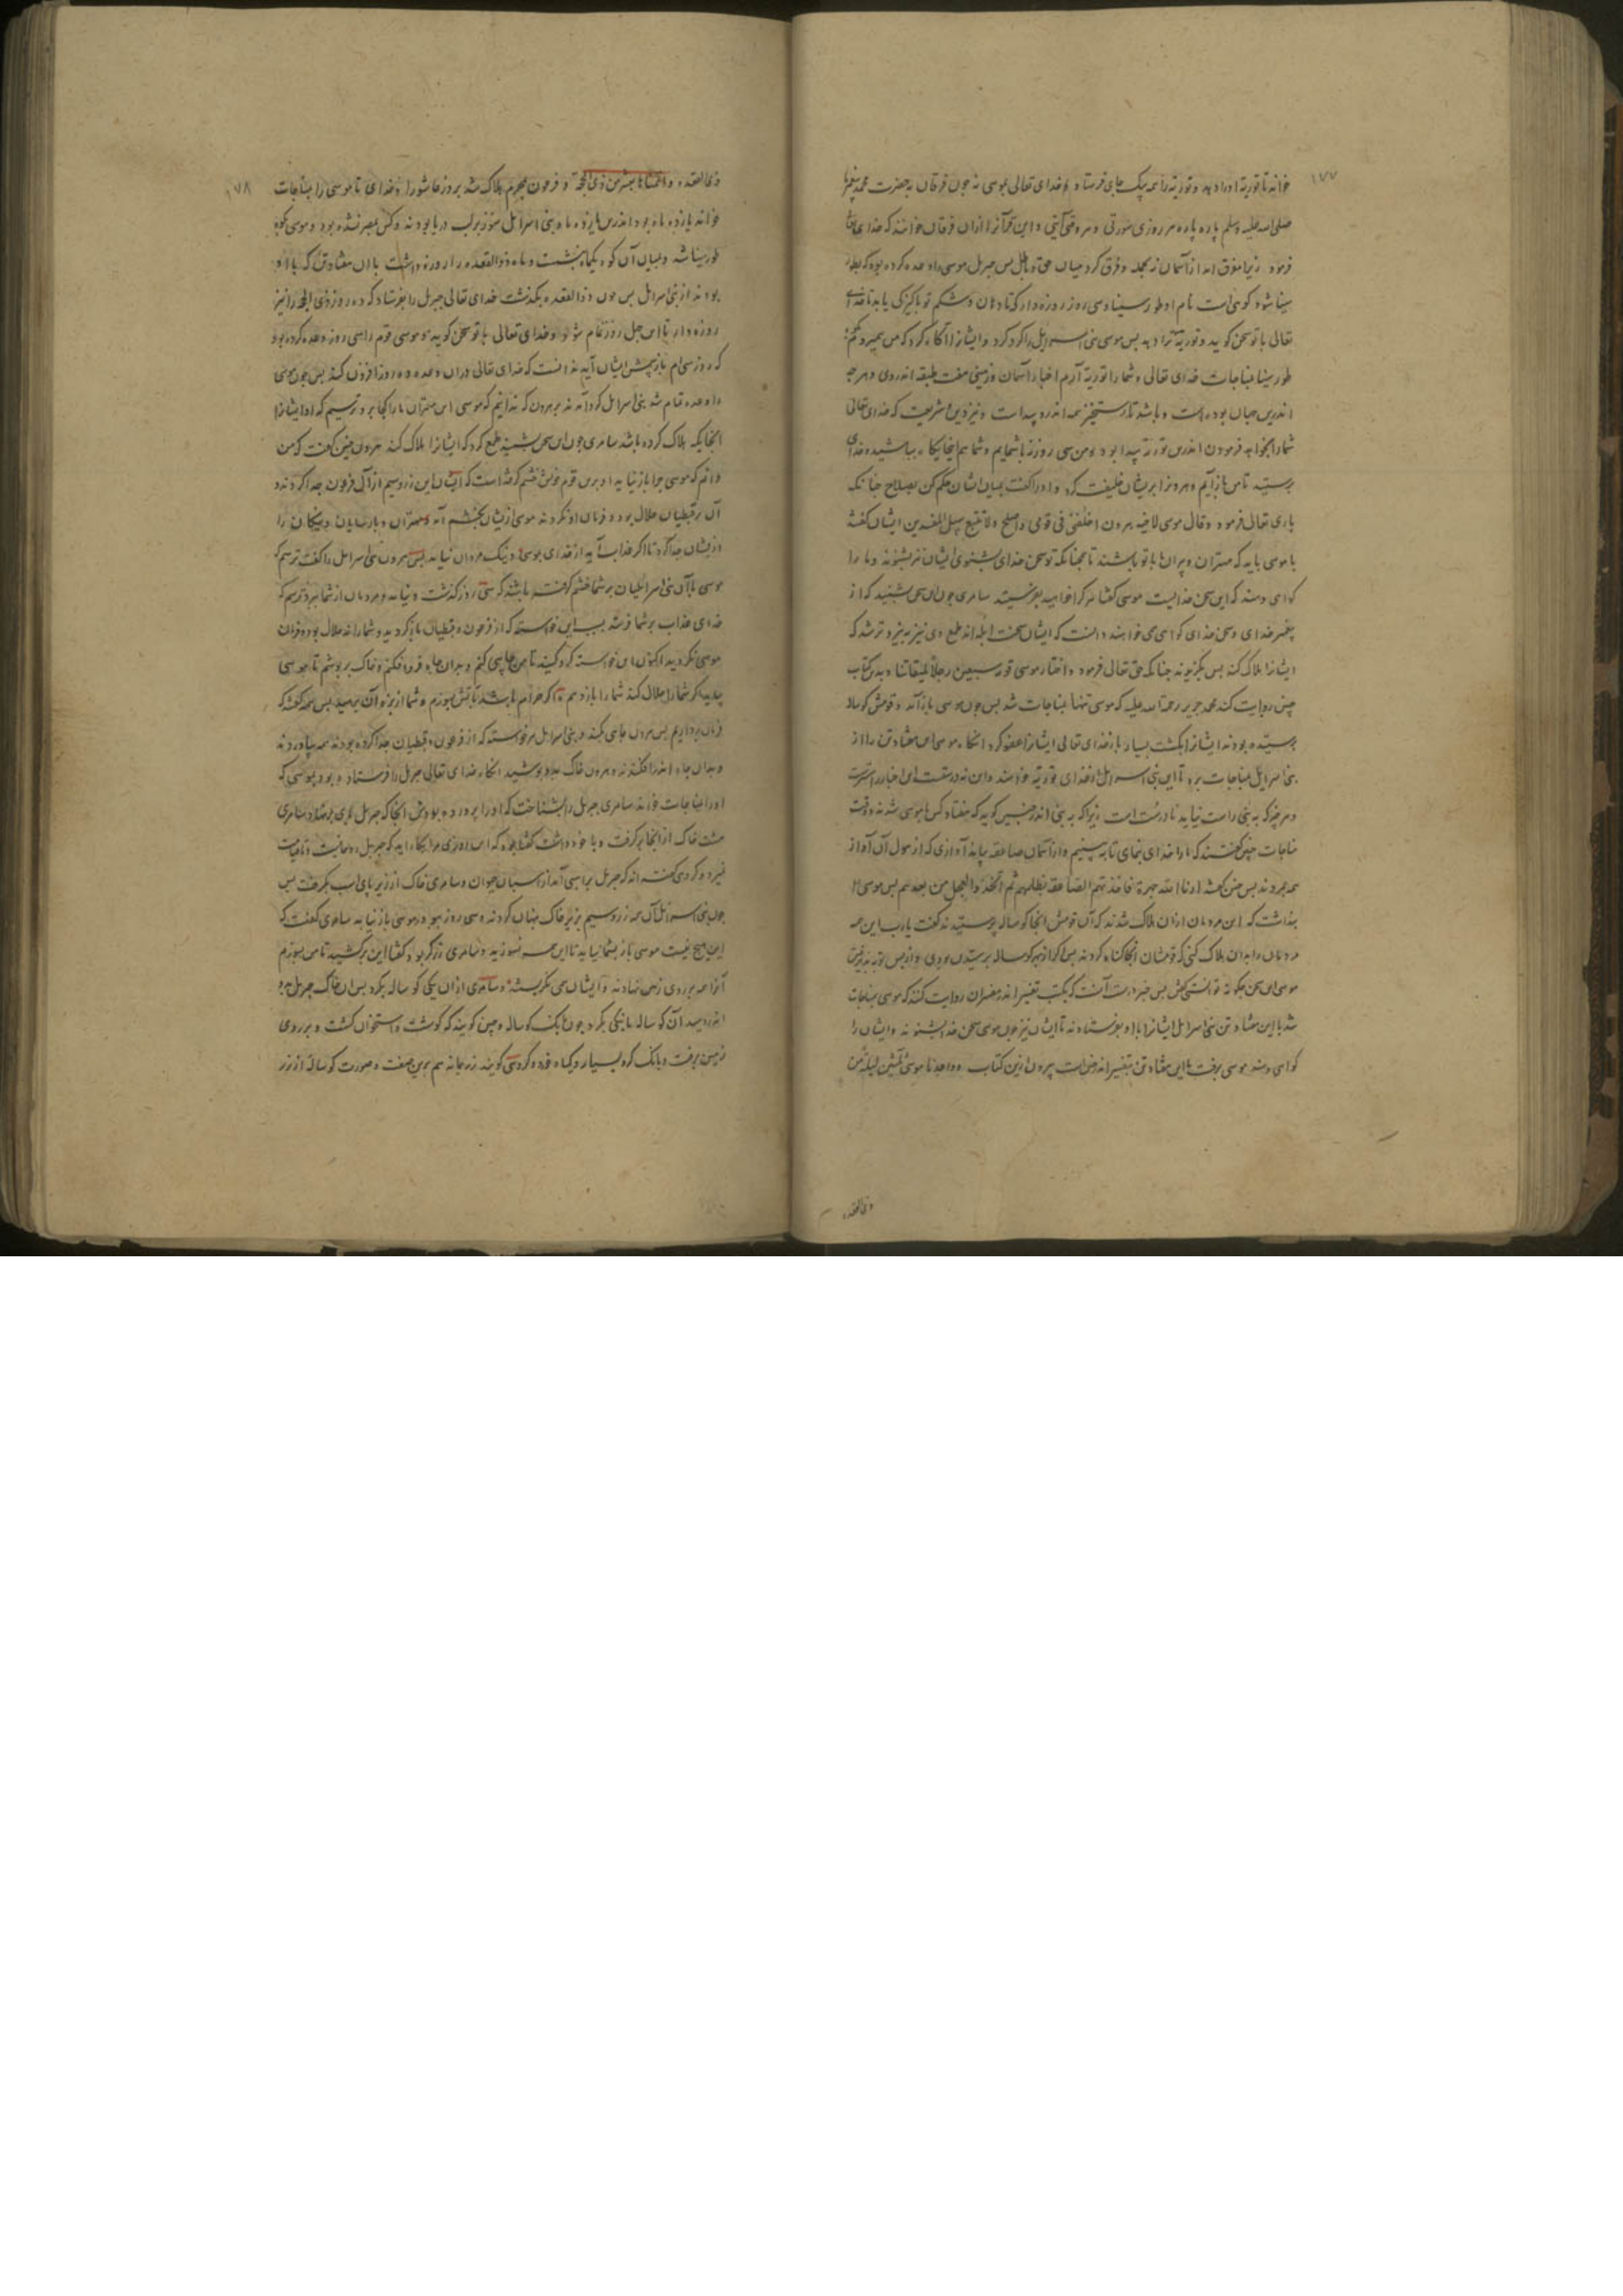 ۱۷۷
خواند تا توریة او را دهد و توریة را همه بیک جای فرستاد خدای تعالی بموسی نه چون فرقان بحضرت محمد پیغمبر ما
صلی الله علیه وسلم پاره پاره هر روزی سورتی و هر وقتی آیتی و این قرآنرا ازان فرقان خوانند که خدای تعالی
فرمود زیرا مفرق امد از آسمان نه بجمله و فرق کرد میان حق و باطل پس جبریل موسی را وعده کرده بود که بطور
سینا شو که کوهی است نام او طور سینا و سی روز روزه دار کتا دهان و شکم تو پاکیزکی یابد تا خدای
تعالی با تو سخن کوید و توریة ترا دهد پس موسی بنی اسرایل را کرد کرد و ایشانرا آکاه کرد که من بمیروم بکوه
طور سینا بمناجات خدای تعالی و شما را توریة آرم اخبار آسمان و زمینی هفت طبقه اندروی و هرچه
اندرین جهان بوده است و باشد تا رستخیز همه اندرو پیداست و نیز دین شریعت که خدای تعالی
شما را بخواهد فرمودن اندرین توریة پیدا بود و من سی روز نه باشمایم و شما هم اینجایکاه بباشید و خدای
پرستید تا من باز آیم و هرونرا بریشان خلیفت کرد و او را کفت میان ایشان حکم کن بصلاح چنانک
باری تعالی فرمود وقال موسی لاخیه هرون اخلفنی فی قومی واصلح ولا تتبع سبیل المفسدین ایشان کفتند
یا موسی باید که مهتران و پیران ما با تو باشند تا همچنانکه تو سخن خدای بشنوی ایشان نیز بشنوند و ما را
کواهی دهند که این سخن خدایست موسی کفتا هر کرا خواهید بفرستید سامری چون این سخن بشنید که از
پیغمبر خدای و سخن خدای کواهی می خواهند دانست که ایشان سخت ابله اند طمع وی نیز تیزتر شد که
ایشانرا هلاک کند پس بکزیدند چنانکه حق تعالی فرمود واختار موسی قومه سبعین رجلا لمیقاتنا و بدین کتاب
چنین روایت کند محمد جریر رحمة الله علیه که موسی تنها بمناجات شد پس چون موسی باز آمد و قومش کوساله
پرستیده بودند ایشانرا بکشت بسیار باز خدای تعالی ایشانرا عفو کرد آنکاه موسی این هفتاد تن را از
بنی اسرایل بمناجات برد تا این بنی اسرایل از خدای توریة خواهند و این نه درستست این اخبار راست
و هر چیز که به نبی راست نیاید نادرست است زیرا که به نبی اندر چنین کوید که هفتاد کس با موسی شدند وقت
مناجات چنین کفتند که ما را خدای بنمای تا به بینیم و از آسمان صاعقه بیامد آوازی که از هول آن آواز
همه بمردند پس چنین کفت ارنا الله جهرة فاخذتهم الصاعقة بظلمهم ثم اتخذوا العجل من بعدهم پس موسی
پنداشت که این مردمان ازان هلاک شدند که آن قومش آنجا کوساله پرستیدند کفت یارب این همه
مردمان را بدان هلاک کنی که قومشان آنجا کناه کردند پس اکر از بهر کوساله پرستیدن بودی و از پس توریة
موسی این سخن چکونه توانستی کفتن پس خبر درست آنست که بکتب تفسیر اندر مفسران روایت کنند که موسی بمناجات
شد با این هفتاد تن بنی اسرایل ایشانرا با او بفرستادند تا ایشان نیز چون موسی سخن خدا بشنوند و ایشان را
کواهی دهند موسی برفت با این هفتاد تن و بتفسیر اندر چنین است بیرون ازین کتاب وواعدنا موسی ثلثین لیلة من
ذی القعده
۱۷۸
ذی القعده واتممناها بعشر من ذی الحجة و فرعون بمحرم هلاک شد بروز عاشورا و خدای تا موسی را بمناجات
خواند یازده ماه بود اندرین یازده ماه بنی اسرایل هنوز بر لب دریا بودند و کس بمصر نشده بود و موسی بکوه
طور سینا شد و بمیان آن کوه یکماه بنشست و ماه ذوالقعده را روزه داشت با این هفتاد تن که با او
بودند از بنی اسرایل پس چون ذوالقعده بکذشت خدای تعالی جبریل را بفرستاد که ده روز ذی الحجه را نیز
روزه دار تا این چهل روز تمام شود و خدای تعالی با تو سخن کوید و موسی قوم را سی روز وعده کرده بود
که روز سی ام باز پیش ایشان آید ندانست که خدای تعالی دران وعده ده روز افزون کند پس چون موسی
را وعده تمام شد بنی اسرایل کرد آمدند بر هرون که ندانیم که موسی این مهتران ما را کجا برد و ترسیم که او ایشانرا
آنجایکه هلاک کرده باشد سامری چون این سخن بشنید طمع کرد که ایشانرا هلاک کند هرون چنین کفت که من
دانم که موسی چرا باز نیامد او برین قوم خویش خشم کرفته است که ایشان این زر و سیم از آل فرعون جدا کردند و
آن بر قبطیان حلال بود و فرمان او نکردند موسی ازیشان بخشم آمد و مهتران و پارسایان و نیکان را
ازیشان جدا کرد تا اکر عذاب آید از خدای بموسی و نیک مردان نیاید پس هرون بنی اسرایل را کفت ترسم که
موسی با آن بنی اسرائیلیان بر شما خشم کرفته باشند که سی روز کذشت و نیامد و مردمان از شما ببرد ترسم که
خدای عذاب بر شما فرستد بسبب این خواسته که از فرعون و قبطیان باز کردید و شما را نه حلال بود و فرمان
موسی نکردید اکنون این خواسته کرد کنید تا من چاهی کنم و بدان چاه فرو افکنم و خاک بر پوشم تا موسی
بیاید اکر شما را حلال کند شما را باز دهم و اکر حرام باشد تا بآتش بسوزم و شما از بزه آن برهید پس همه کفتند که
فرمان برداریم پس هرون چاهی بکند و بنی اسرایل هر خواسته که از فرعون و قبطیان جدا کرده بودند همه بیاوردند
و بدان چاه اندر افکندند و هرون خاک بدو پوشید آنکاه خدای تعالی جبریل را فرستاده بود بموسی که
او را بمناجات خواند سامری جبریل را بشناخت که او را پرورده بود
مشت خاک از آنجا برکرفت و با خود داشت کفتا
جبریل بر اسبی آمد از اسپان حیوان و سامری خاک از زیر پای اسب بکرفت پس
چون بنی اسرایل آن همه زر و سیم بزیر خاک پنهان کردند و سی روز ببود و موسی باز نیامد سامری کفت که
این هیچ نیست موسی باز بشما نیاید تا این همه نسوزید و سامری زرکر بود کفتا این برکشید تا من بسوزم
آنرا همه بر روی زمین نهادند و ایشان می نکریستند و سامری ازان یکی کوساله بکرد پس آن خاک جبریل بدو
اندر دمید آن کوساله بانکی بکرد چون بانک کوساله و چنین کویند که کوشت و استخوان کشت و بر روی
زمین برفت و بانک کرد بسیار و کیاه خورد و کروهی کویند نه چنانه هم برین صفت و صورت کوساله از زر